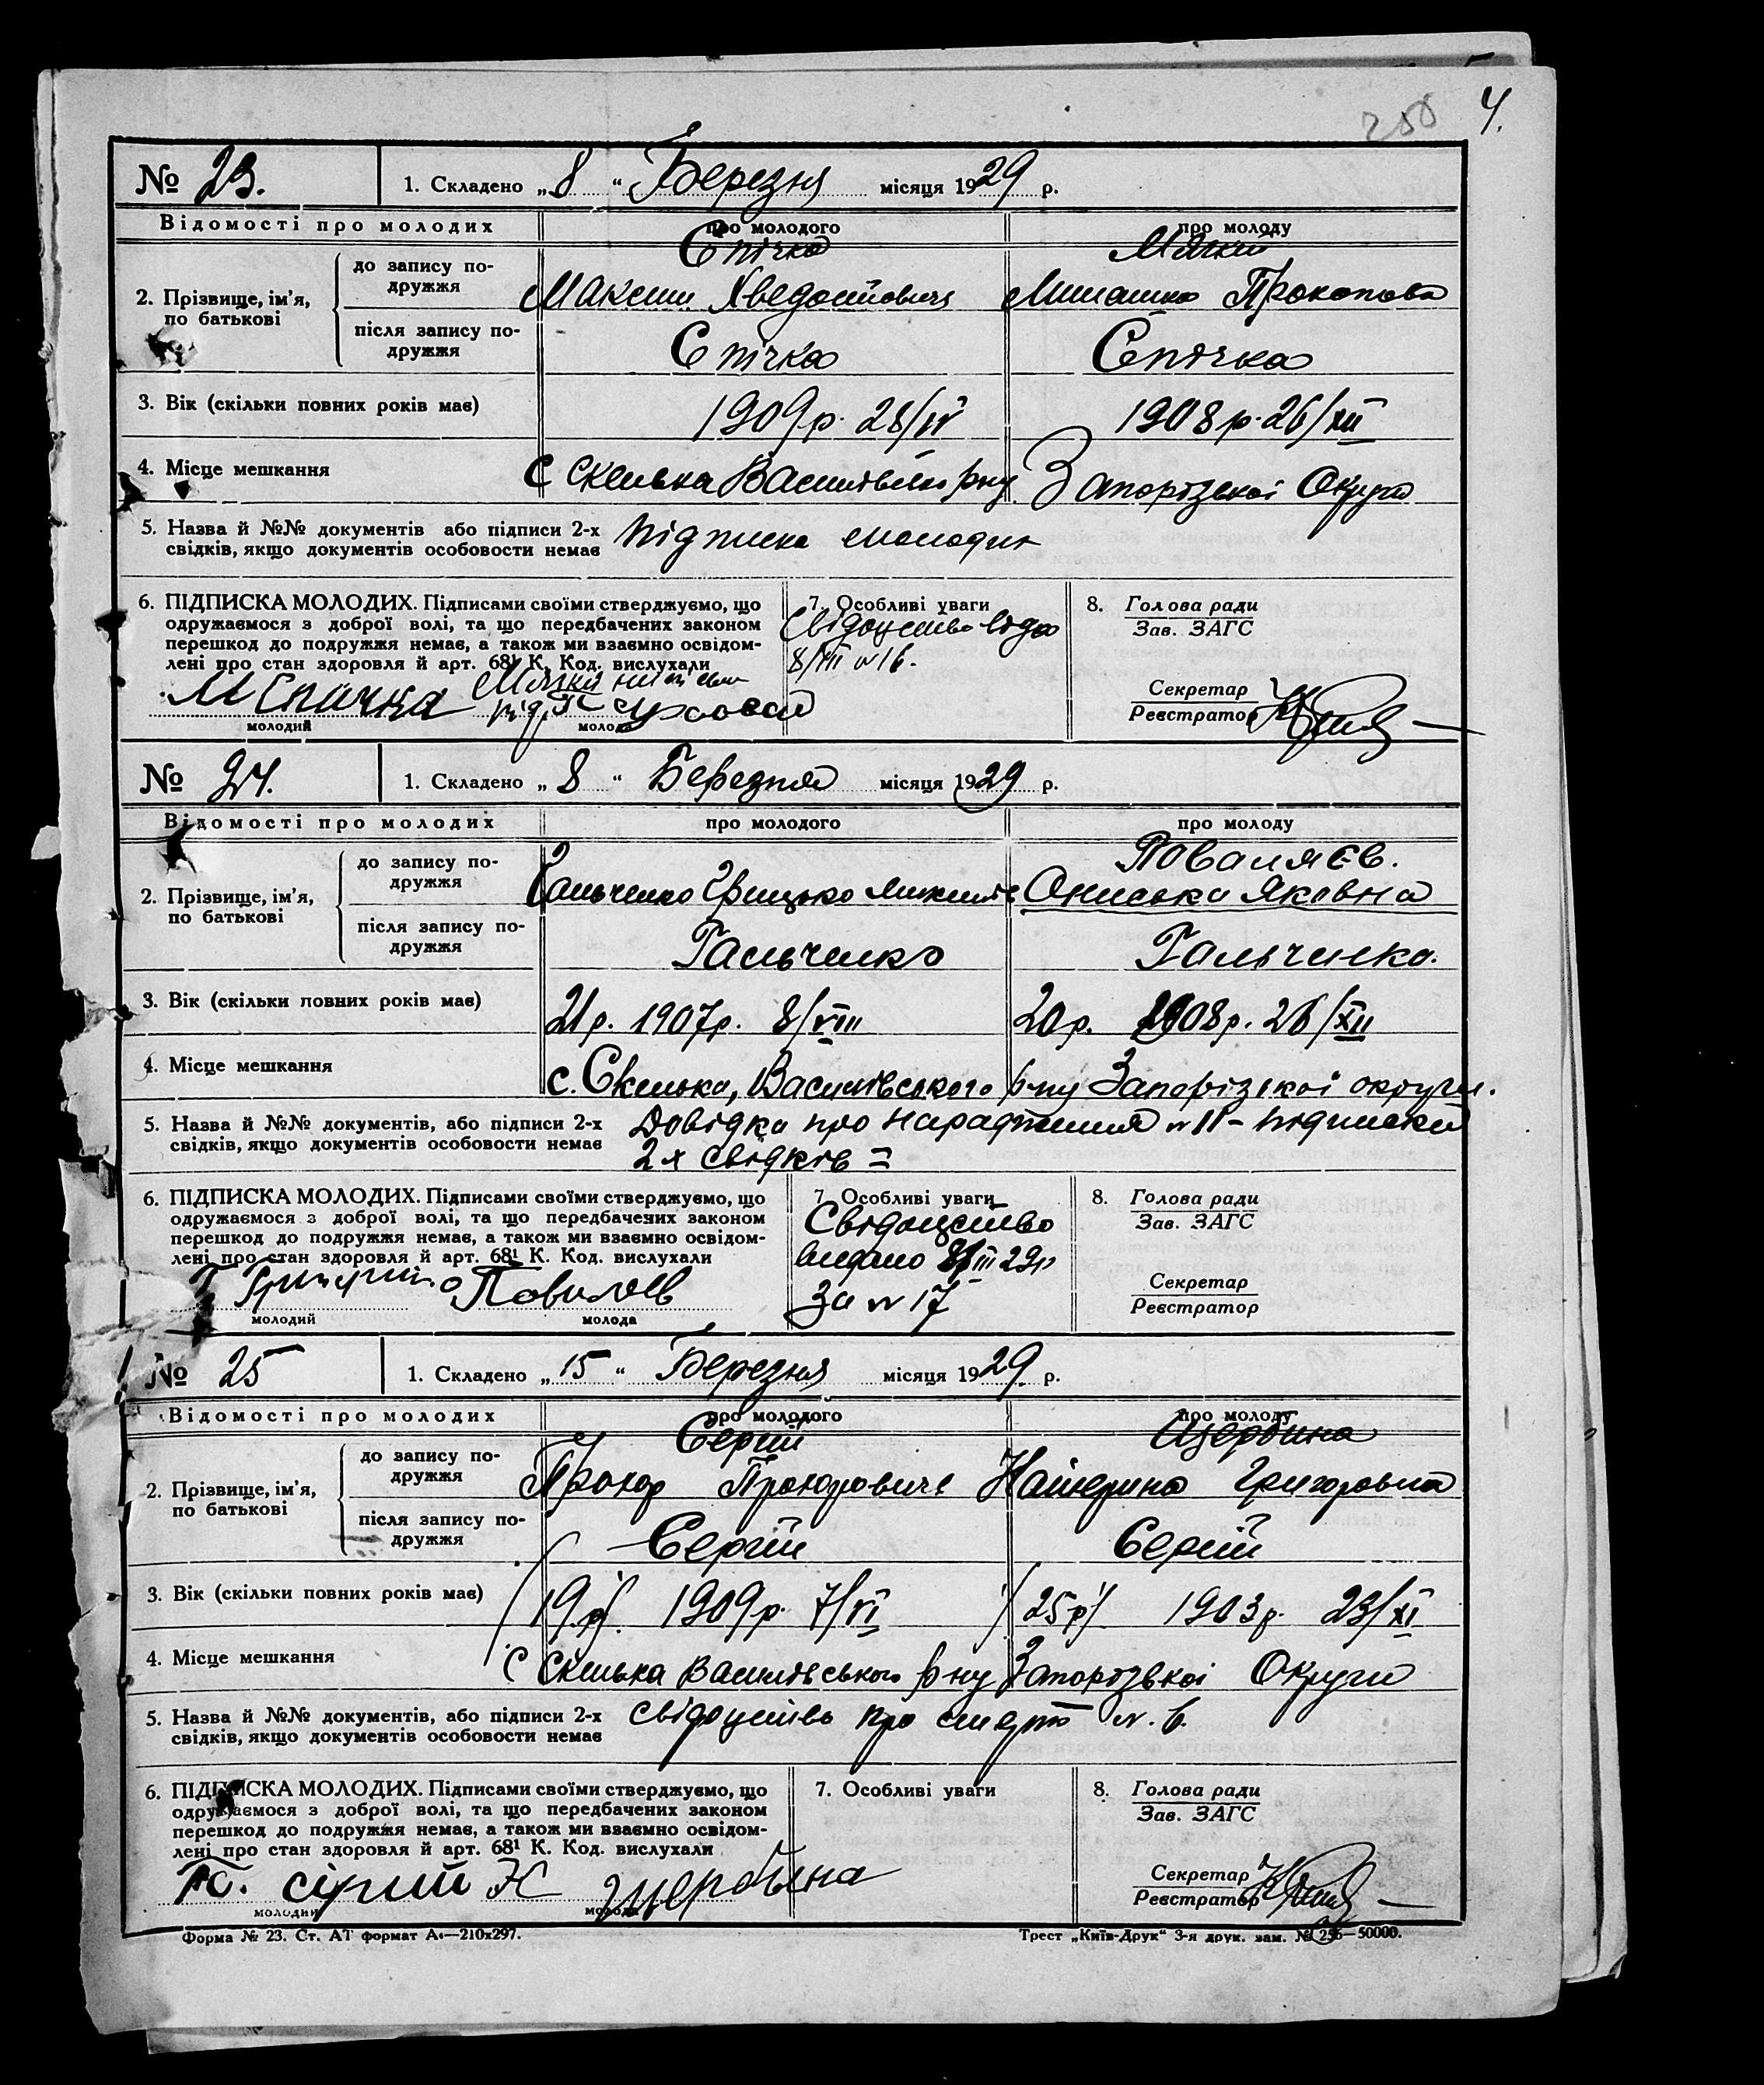 250 4.
№ 23. 1. Складено „ 8 “ Березня місяця 1929 р.
Відомості про молодих про молодого про молоду
Спічка
до запису по-
дружжя
2. Прізвище, ім'я,
по батькові
Максим Хведотовичь Прокопова
після запису по-
дружжя
Спічка Спічка
3. Вік (скільки повних років має) 1909р. 28/IV 1908 р. 26/XII
4. Місце мешкання с Скелька р-ну Запорізької Округи
5. Назва й №№ документів або підписи 2-х
свідків, якщо документів особовости немає
Підписка молодих
6. ПІДПИСКА МОЛОДИХ. Підписами своїми стверджуємо, що
одружаємося з доброї волі, та що передбачених законом
перешкод до подружжя немає, а також ми взаємно освідом-
лені про стан здоровля й арт. 68¹ К. Код. вислухали
М Спичка
молодий молода
7. Особливі уваги
Свідоцтво
№ 16.
8. Голова ради
Зав. ЗАГС
Секретар
Реєстратор
№ 24. 1. Складено „ 8 “ Березня місяця 1929 р.
Відомості про молодих про молодого про молоду
Поваляєв.
до запису по-
дружжя
2. Прізвище, ім'я,
по батькові
Гальченко Грицько Ониська Яковна
після запису по-
дружжя
Гальченко Гальченко.
3. Вік (скільки повних років має) 21р. 1907р. 8/VIII 20р. 1908р. 26/XII
4. Місце мешкання с. Скелька, Василівського р-ну Запорізької округи.
5. Назва й №№ документів, або підписи 2-х
свідків, якщо документів особовости немає
Довідка про народження № 11 – підписка
2х свідків =
6. ПІДПИСКА МОЛОДИХ. Підписами своїми стверджуємо, що
одружаємося з доброї волі, та що передбачених законом
перешкод до подружжя немає, а також ми взаємно освідом-
лені про стан здоровля й арт. 68¹ К. Код. вислухали
молодий молода
7. Особливі уваги
Свідоцтво
видано 8/III 29р
за № 17
8. Голова ради
Зав. ЗАГС
Секретар
Реєстратор
№ 25 1. Складено „ 15 “ Березня місяця 1929. р.
Відомості про молодих про молодого про молоду
Сергій Щербина
до запису по-
дружжя
2. Прізвище, ім'я,
по батькові
Прохор Прохоровичь Катерина Григоровна
після запису по-
дружжя
Сергій Сергій
3. Вік (скільки повних років має) 19р. 1909р. 7/VI 25р 1903р. 23/XI
4. Місце мешкання с Скелька Василівського р-ну Запорізької Округи
5. Назва й №№ документів, або підписи 2-х
свідків, якщо документів особовости немає
Свідоцтво про смерть №. 6.
6. ПІДПИСКА МОЛОДИХ. Підписами своїми стверджуємо, що
одружаємося з доброї волі, та що передбачених законом
перешкод до подружжя немає, а також ми взаємно освідом-
лені про стан здоровля й арт. 68¹ К. Код. вислухали
К щербына
молодий молода
7. Особливі уваги
8. Голова ради
Зав. ЗАГС
Секретар
Реєстратор
Форма № 23. Ст. АТ формат А₄—210х297. Трест „Київ-Друк“ 3-я друк. зам. № 256—50000.